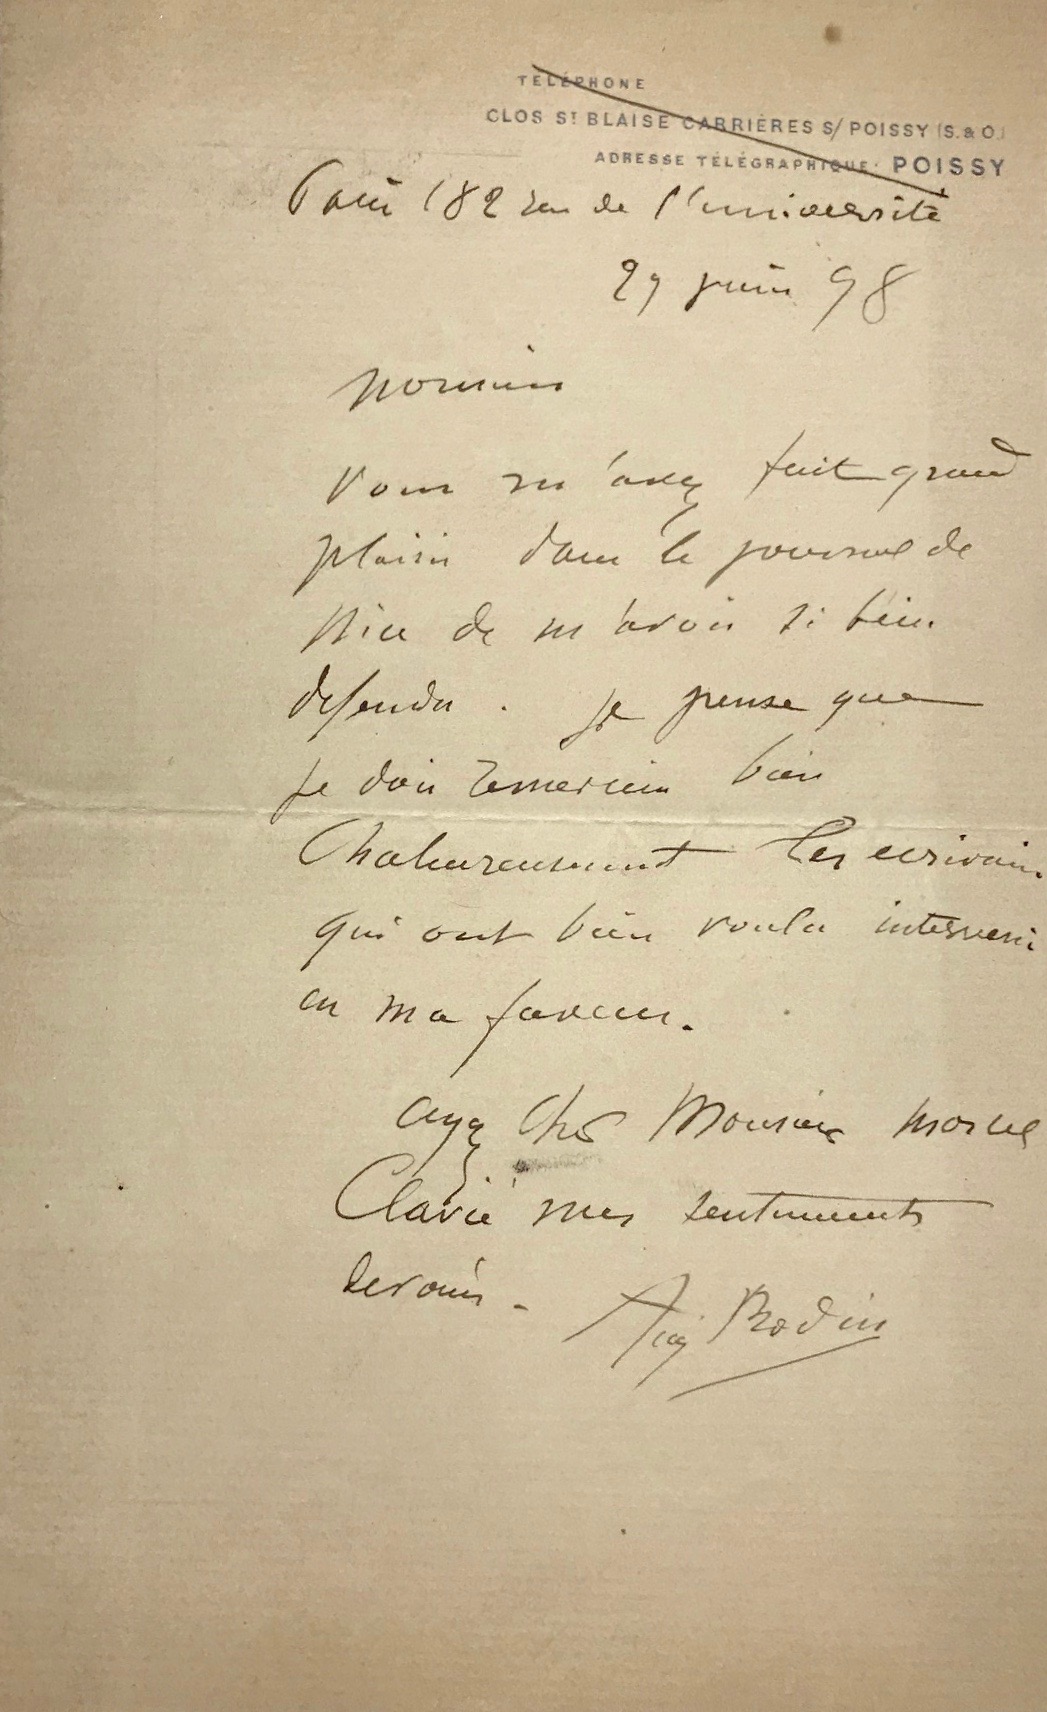 TÉLÉPHONE
CLOS ST BLAISE CARRIÈRES S/ POISSY (S. & O.)
ADRESSE TÉLÉGRAPHIQUE: POISSY
Paris 182 rue de l'université
29 juin 98
Monsieur
Vous m'avez fait grand
plaisir dans le journal de
Nice de m'avoir si bien
defendu. je pense que
je dois remercier bien
Chaleureusement les ecrivains
qui ont bien voulu intervenir
en ma faveur.
ayez cher Monsieur Marcel
Clavié mes sentiments
devoués.
Aug Rodin